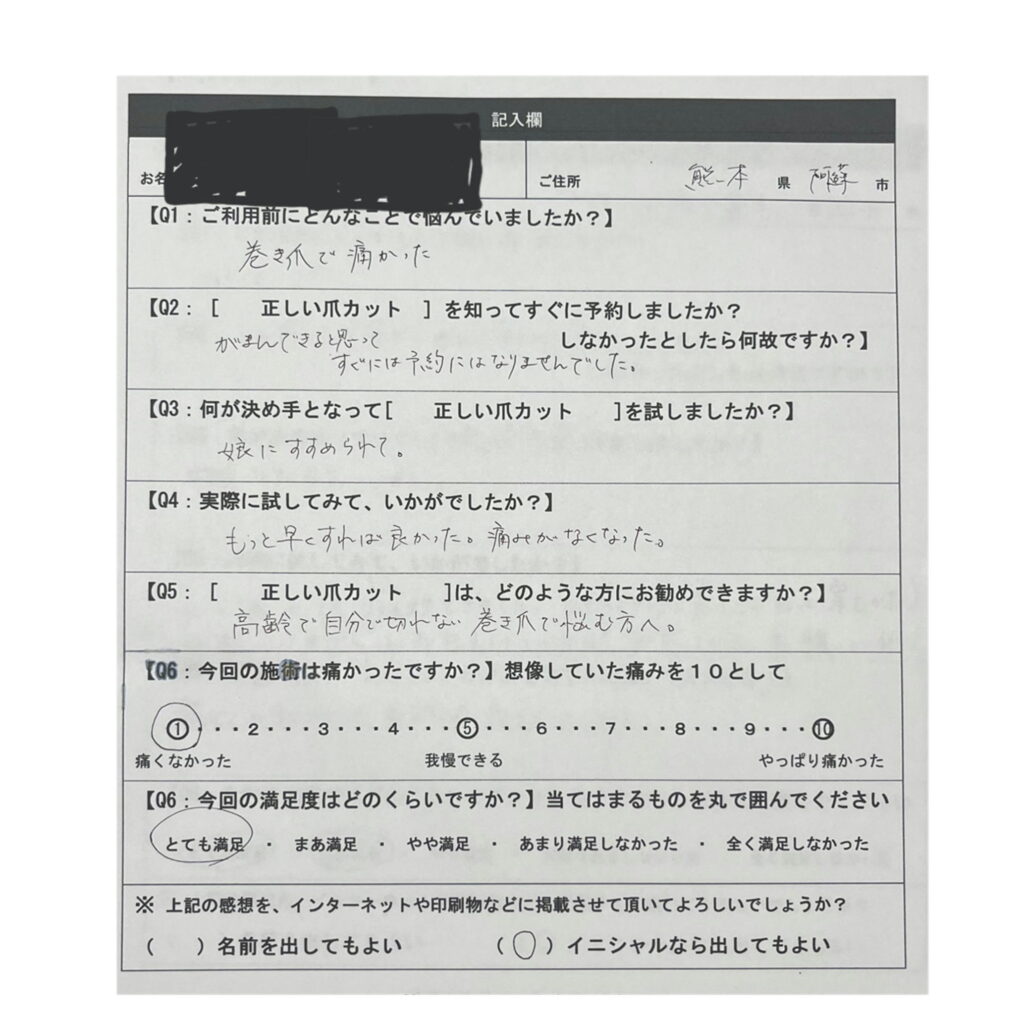 記入欄
お名
ご住所 熊本 県 阿蘇 市
【Q1：ご利用前にどんなことで悩んでいましたか？】
巻き爪で痛かった
【Q2：［ 正しい爪カット ］を知ってすぐに予約しましたか？
しなかったとしたら何故ですか？】
がまんできると思って
すぐには予約にはなりませんでした。
【Q3：何が決め手となって［ 正しい爪カット ］を試しましたか？】
娘にすすめられて。
【Q4：実際に試してみて、いかがでしたか？】
もっと早くすれば良かった。痛みがなくなった。
【Q5：［ 正しい爪カット ］は、どのような方にお勧めできますか？】
高齢で自分で切れない巻き爪で悩む方へ。
【Q6：今回の施術は痛かったですか？】想像していた痛みを１０として
①・・・２・・・３・・・４・・・⑤・・・６・・・７・・・８・・・９・・・⑩
痛くなかった 我慢できる やっぱり痛かった
【Q6：今回の満足度はどのくらいですか？】当てはまるものを丸で囲んでください
とても満足 ・ まあ満足 ・ やや満足 ・ あまり満足しなかった ・ 全く満足しなかった
※ 上記の感想を、インターネットや印刷物などに掲載させて頂いてよろしいでしょうか？
（ ）名前を出してもよい （○）イニシャルなら出してもよい